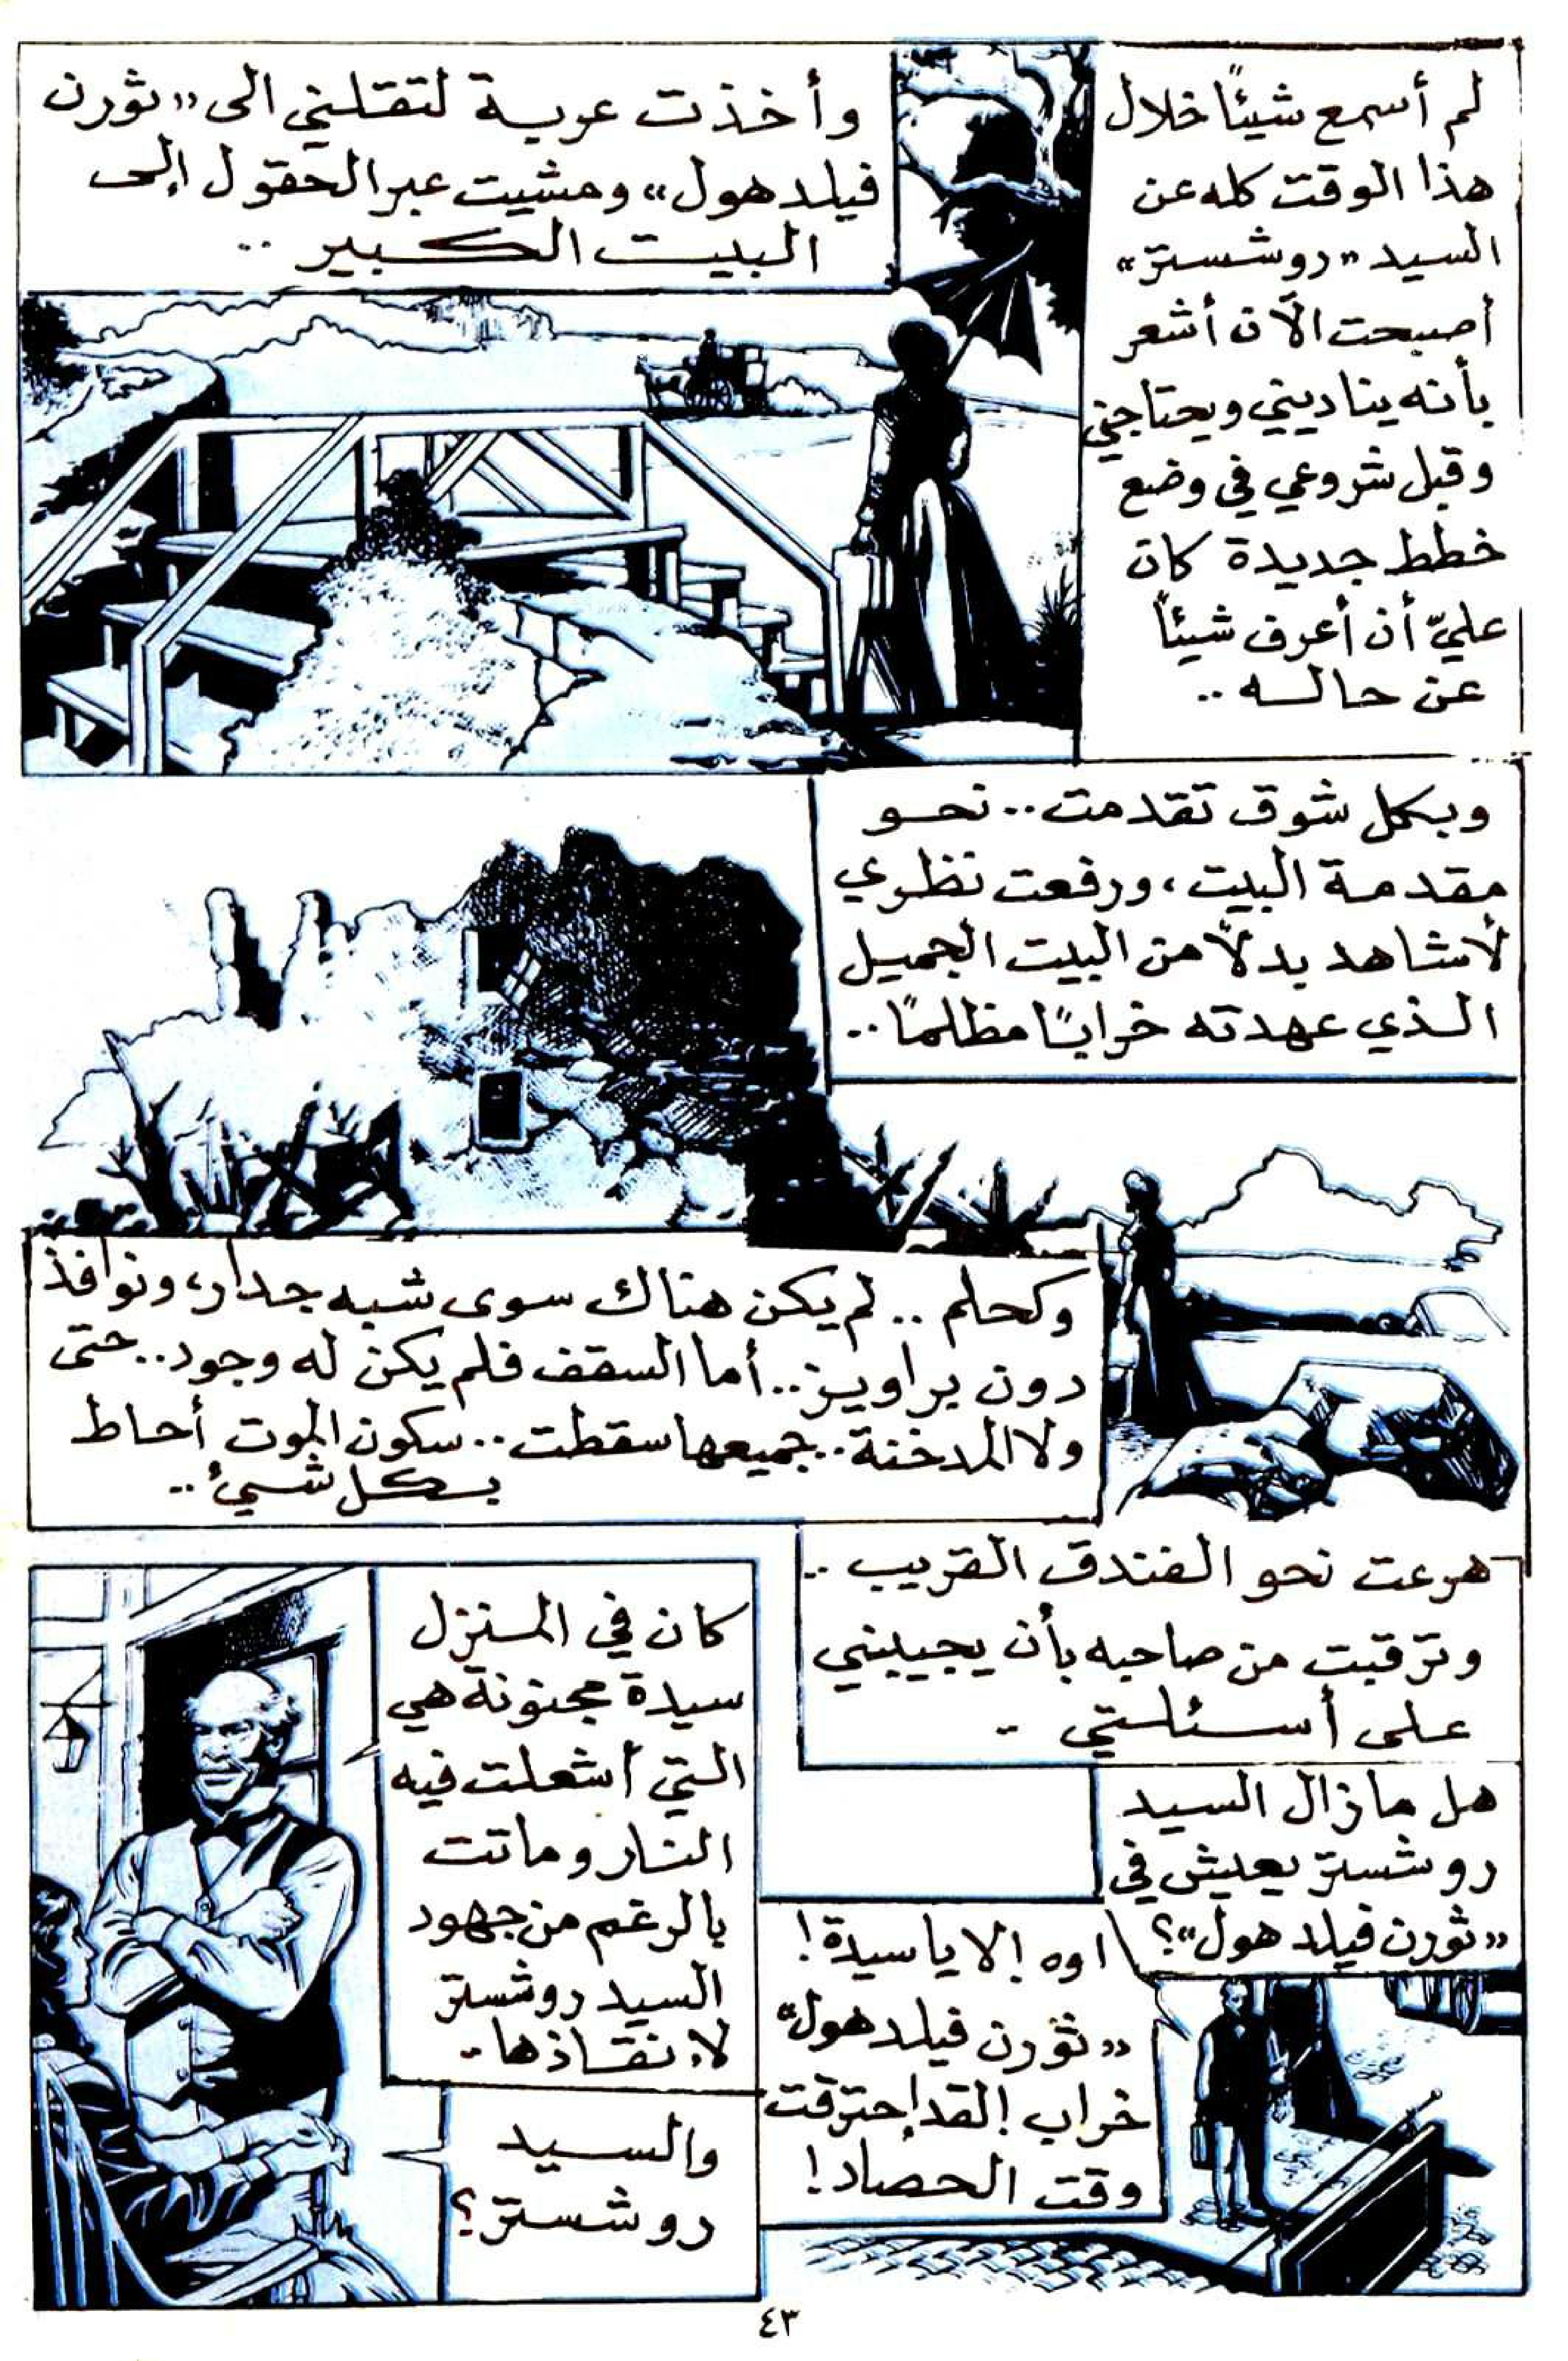 لم أسمع شيئًا خلال
هذا الوقت كله عن
السيد «روشستر»
أصبحت الآن أشعر
بأنه يناديني ويحتاجني
وقبل شروعي في وضع
خطط جديدة كان
عليّ أن أعرف شيئاً
عن حاله ..
وأخذت عربة لتقلني الى «ثورن
فيلد هول» ومشيت عبر الحقول إلى
البيت الكبير ..
وبكل شوق تقدمت .. نحو
مقدمة البيت، ورفعت نظري
لأشاهد بدلاً من البيت الجميل
الذي عهدته خرابًا مظلمًا ..
وكحلم .. لم يكن هناك سوى شبه جدار، ونوافذ
دون براويز .. أما السقف فلم يكن له وجود .. حتى
ولا المدخنة .. جميعها سقطت .. سكون الموت أحاط
بكل شيئ ..
هرعت نحو الفندق القريب ..
وترقبت من صاحبه بأن يجيبني
على أسئلتي -
هل مازال السيد
روشستر يعيش في
«ثورن فيلد هول»؟
اوه! لا يا سيدة!
«ثورن فيلد هول»
خراب! لقد إحترقت
وقت الحصاد!
كان في المنزل
سيدة مجنونة هي
التي أشعلت فيه
النار وماتت
بالرغم من جهود
السيد روشستر
لإنقاذها -
والسيد
روشستر؟
٤٣